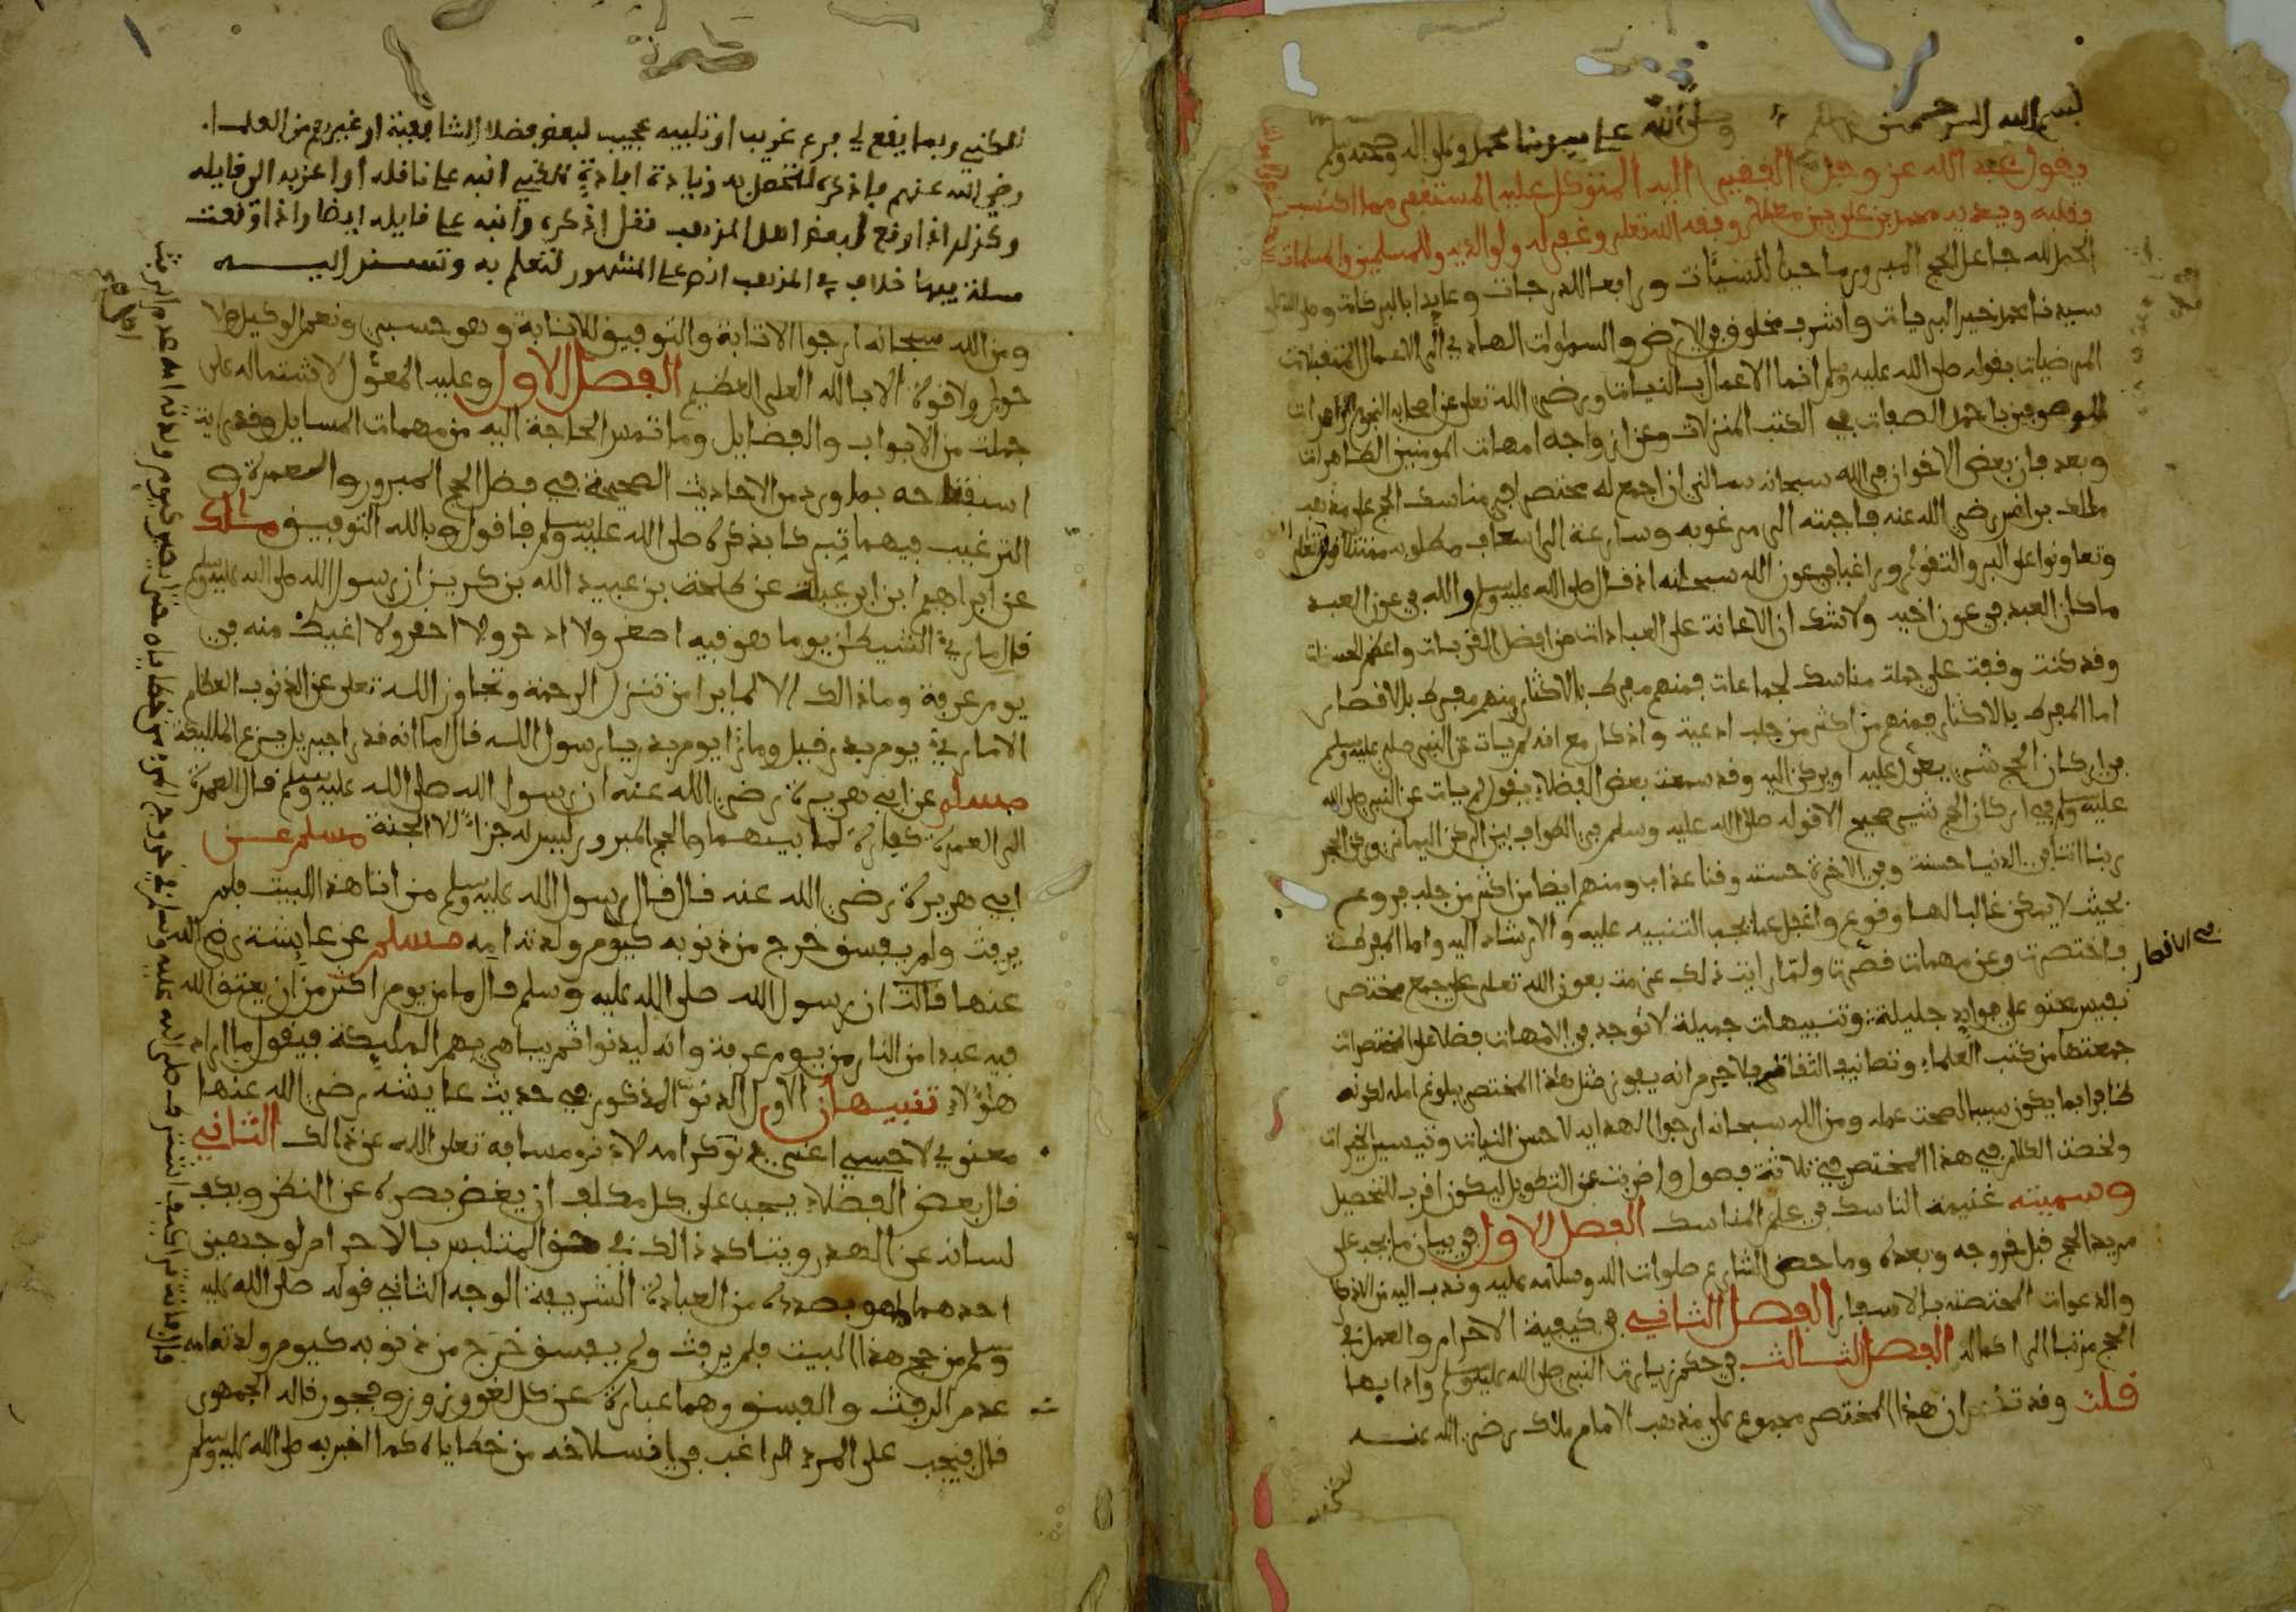 بسم الله الرحمن وصلى الله على سيدنا محمد وعلى اله وصحبه وسلم
يقول عبد الله عز وجل الفقير اليه المتوكل عليه المستغفر مما اكتسب
بقلبه ويديه محمد بن علي بن معلى وفقه الله تعلى وغفر له ولوالديه وللمسلمين والمسلمات
الحمد لله جاعل الحج المبرور ماحيا للسيئات ورافعا للدرجات وعايدا بالبركات وصلى الله على
سيدنا محمد خير البريات واشرف مخلوق في الارض والسموات الهادي الى الاعمال المتقبلات
المرضيات بقوله صلى الله عليه وسلم انما الاعمال بالنيات ورضي الله تعلى عن اصحابه النجوم الزاهرات
الموصوفين باحمد الصفات في الكتب المنزلات وعن ازواجه امهات المومنين الطاهرات
وبعد فان بعض الاخوان في الله سبحانه سالني ان اجمع له مختصرا في مناسك الحج على مذهب
مالك بن انس رضي الله عنه فاجبته الى مرغوبه وسارعة الى اسعاف مطلوبه ممتثلا قوله تعلى
وتعاونوا على البر والتقوى وراغبا في عون الله سبحانه اذ قال صلى الله عليه وسلم والله في عون العبد
ما كان العبد في عون اخيه ولا شك ان الاعانة على العبادات من افضل القربات واعظم الحسنات
وقد كنت وقفت على جملة مناسك لجماعات فمنهم مفرط بالاكثار ومنهم مفرط بالاقصار
اما المفرط بالاكثار فمنهم من اكثر من جلب ادعية واذكار مع انه لم يات عن النبي صلى عليه وسلم
في اركان الحج شيء يعول عليه او يركن اليه وقد سمعت بعض الفضلاء يقول لم يات عن النبي صلى الله
عليه وسلم في اركان الحج شيء صحيح الا قوله صلى الله عليه وسلم في الطواف بين الركن اليماني وركن الحجر
ربنا اتنا في الدنيا حسنة وفي الاخرة حسنة وقنا عذاب ومنهم ايضا من اكثر من جلب فروع
بحيث لا يمكن غالبا لها وقوع واغفل عما يجب التنبيه عليه والارشاد اليه واما المفرط
في الاقصار
فاختصرت وعن مهمات قصرت ولما رايت ذلك عزمت بعون الله تعلى على جمع مختصر
نفيس محتو على فوايد جليلة وتنبيهات جميلة لا توجد في الامهات فضلا على المختصرات
جمعتها من كتب العلماء وتصانيف الثقات فلا جرم انه يفوز مثل هذا المختصر ببلوغ امله لكونه
ظافرا بما يكون سببا لصحت عمله ومن الله سبحانه ارجوا الهداية لاحسن النيات وتيسير الخيرات
ولخصت الكلام في هذا المختصر في ثلاثة فصول واضربت عن التطويل ليكون اقرب للتحصيل
وسميته غنيمة الناسك في علم المناسك الفصل الاول في بيان ما يجب على
مريد الحج قبل خروجه وبعده وما حض الشارع صلوات الله وسلامه عليه وندب اليه من الاذكار
والدعوات المختصة بالاسفار الفصل الثاني في كيفية الاحرام والعمل في
الحج مرتبا الى اكماله الفصل الثالث في حكم زيارت النبي صلى الله عليه وسلم وادابها
قلت وقد تقرر ان هذا المختصر مجموع على مذهب الامام مالك رضي الله عنه
لكني وربما يقع لي فرع غريب او تنبيه عجيب لبعض فضلا الشافعية او غيرهم من العلما
رضي الله عنهم فاذكره لتحصل به زيادة افادة لكني انبه على ناقله او اعزيه الى قايله
وكذلك اذا وقع لبعض اهل المذهب نقل اذكره وانبه على قايله ايضا واذا وقعت
مسئلة فيها خلاف في المذهب انص على المشهور لتعلم به وتستند اليه
ومن الله سبحانه ارجوا الاثابة والتوفيق للانابة وهو حسبي ونعم الوكيل ولا
حول ولا قوة الا بالله العلي العظيم الفصل الاول وعليه المعول لاشتماله على
جملة من الابواب والفضايل وما تمس الحاجة اليه من مهمات المسايل وقد رايت
استفتاحه بما ورد من الاحاديث الصحيحة في فضل الحج المبرور والعمرة و
الترغيب فيهما تبركا بذكره صلى الله عليه وسلم فاقول وبالله التوفيق مالك
عن ابراهيم ابن ابي عبلة عن طلحة بن عبيد الله بن كريز ان رسول الله صلى الله عليه وسلم
قال ما ريء الشيطان يوما هو فيه اصغر ولا ادحر ولا احقر ولا اغيظ منه في
يوم عرفة وما ذالك الا لما يرا من تنزل الرحمة وتجاوز الله تعلى عن الذنوب العظام
الا ما ريء يوم بدر قيل وما را يوم بدر يا رسول الله قال اما انه قد را جبريل يزع الملئكة
مسلم عن ابي هريرة رضي الله عنه ان رسول الله صلى الله عليه وسلم قال العمرة
الى العمرة كفارة لما بينهما والحج المبرور ليس له جزاء الا الجنة مسلم عن
ابي هريرة رضي الله عنه قال قال رسول الله عليه وسلم من اتا هذا البيت فلم
يرفث ولم يفسق خرج من ذنوبه كيوم ولدته امه مسلم عن عايشة رضي الله
عنها قالت ان رسول الله صلى الله عليه وسلم قال ما من يوم اكثر من ان يعتق الله
فيه عبدا من النار من يوم عرفة وانه ليدنوا ثم يباهي بهم الملايكة فيقول ما اراد
هاؤلاء تنبيهان الاول الدنو المذكور في حديث عايشة رضي الله عنها
معنوي لا حسي اعني دنو كرامه لا دنو مسافه تعلى الله عن ذالك الثاني
قال بعض الفضلاء يجب على كل مكلف ان يغض بصره عن النظر ويكف
لسانه عن الهذر ويتاكد ذالك في حق المتلبس بالاحرام لوجهين
احدهما ما هو بصدده من العبادة الشريفة الوجه الثاني قوله صلى الله عليه
وسلم من حج هذا البيت فلم يرفث ولم يفسق خرج من ذنوبه كيوم ولدته امه
عدم الرفث والفسق وهما عبارة عن كل لغو وزور وفجور قاله الجمهور
قال فيجب على المرء الراغب في انسلاخه من خطاياه كما اخبر به صلى الله عليه وسلم